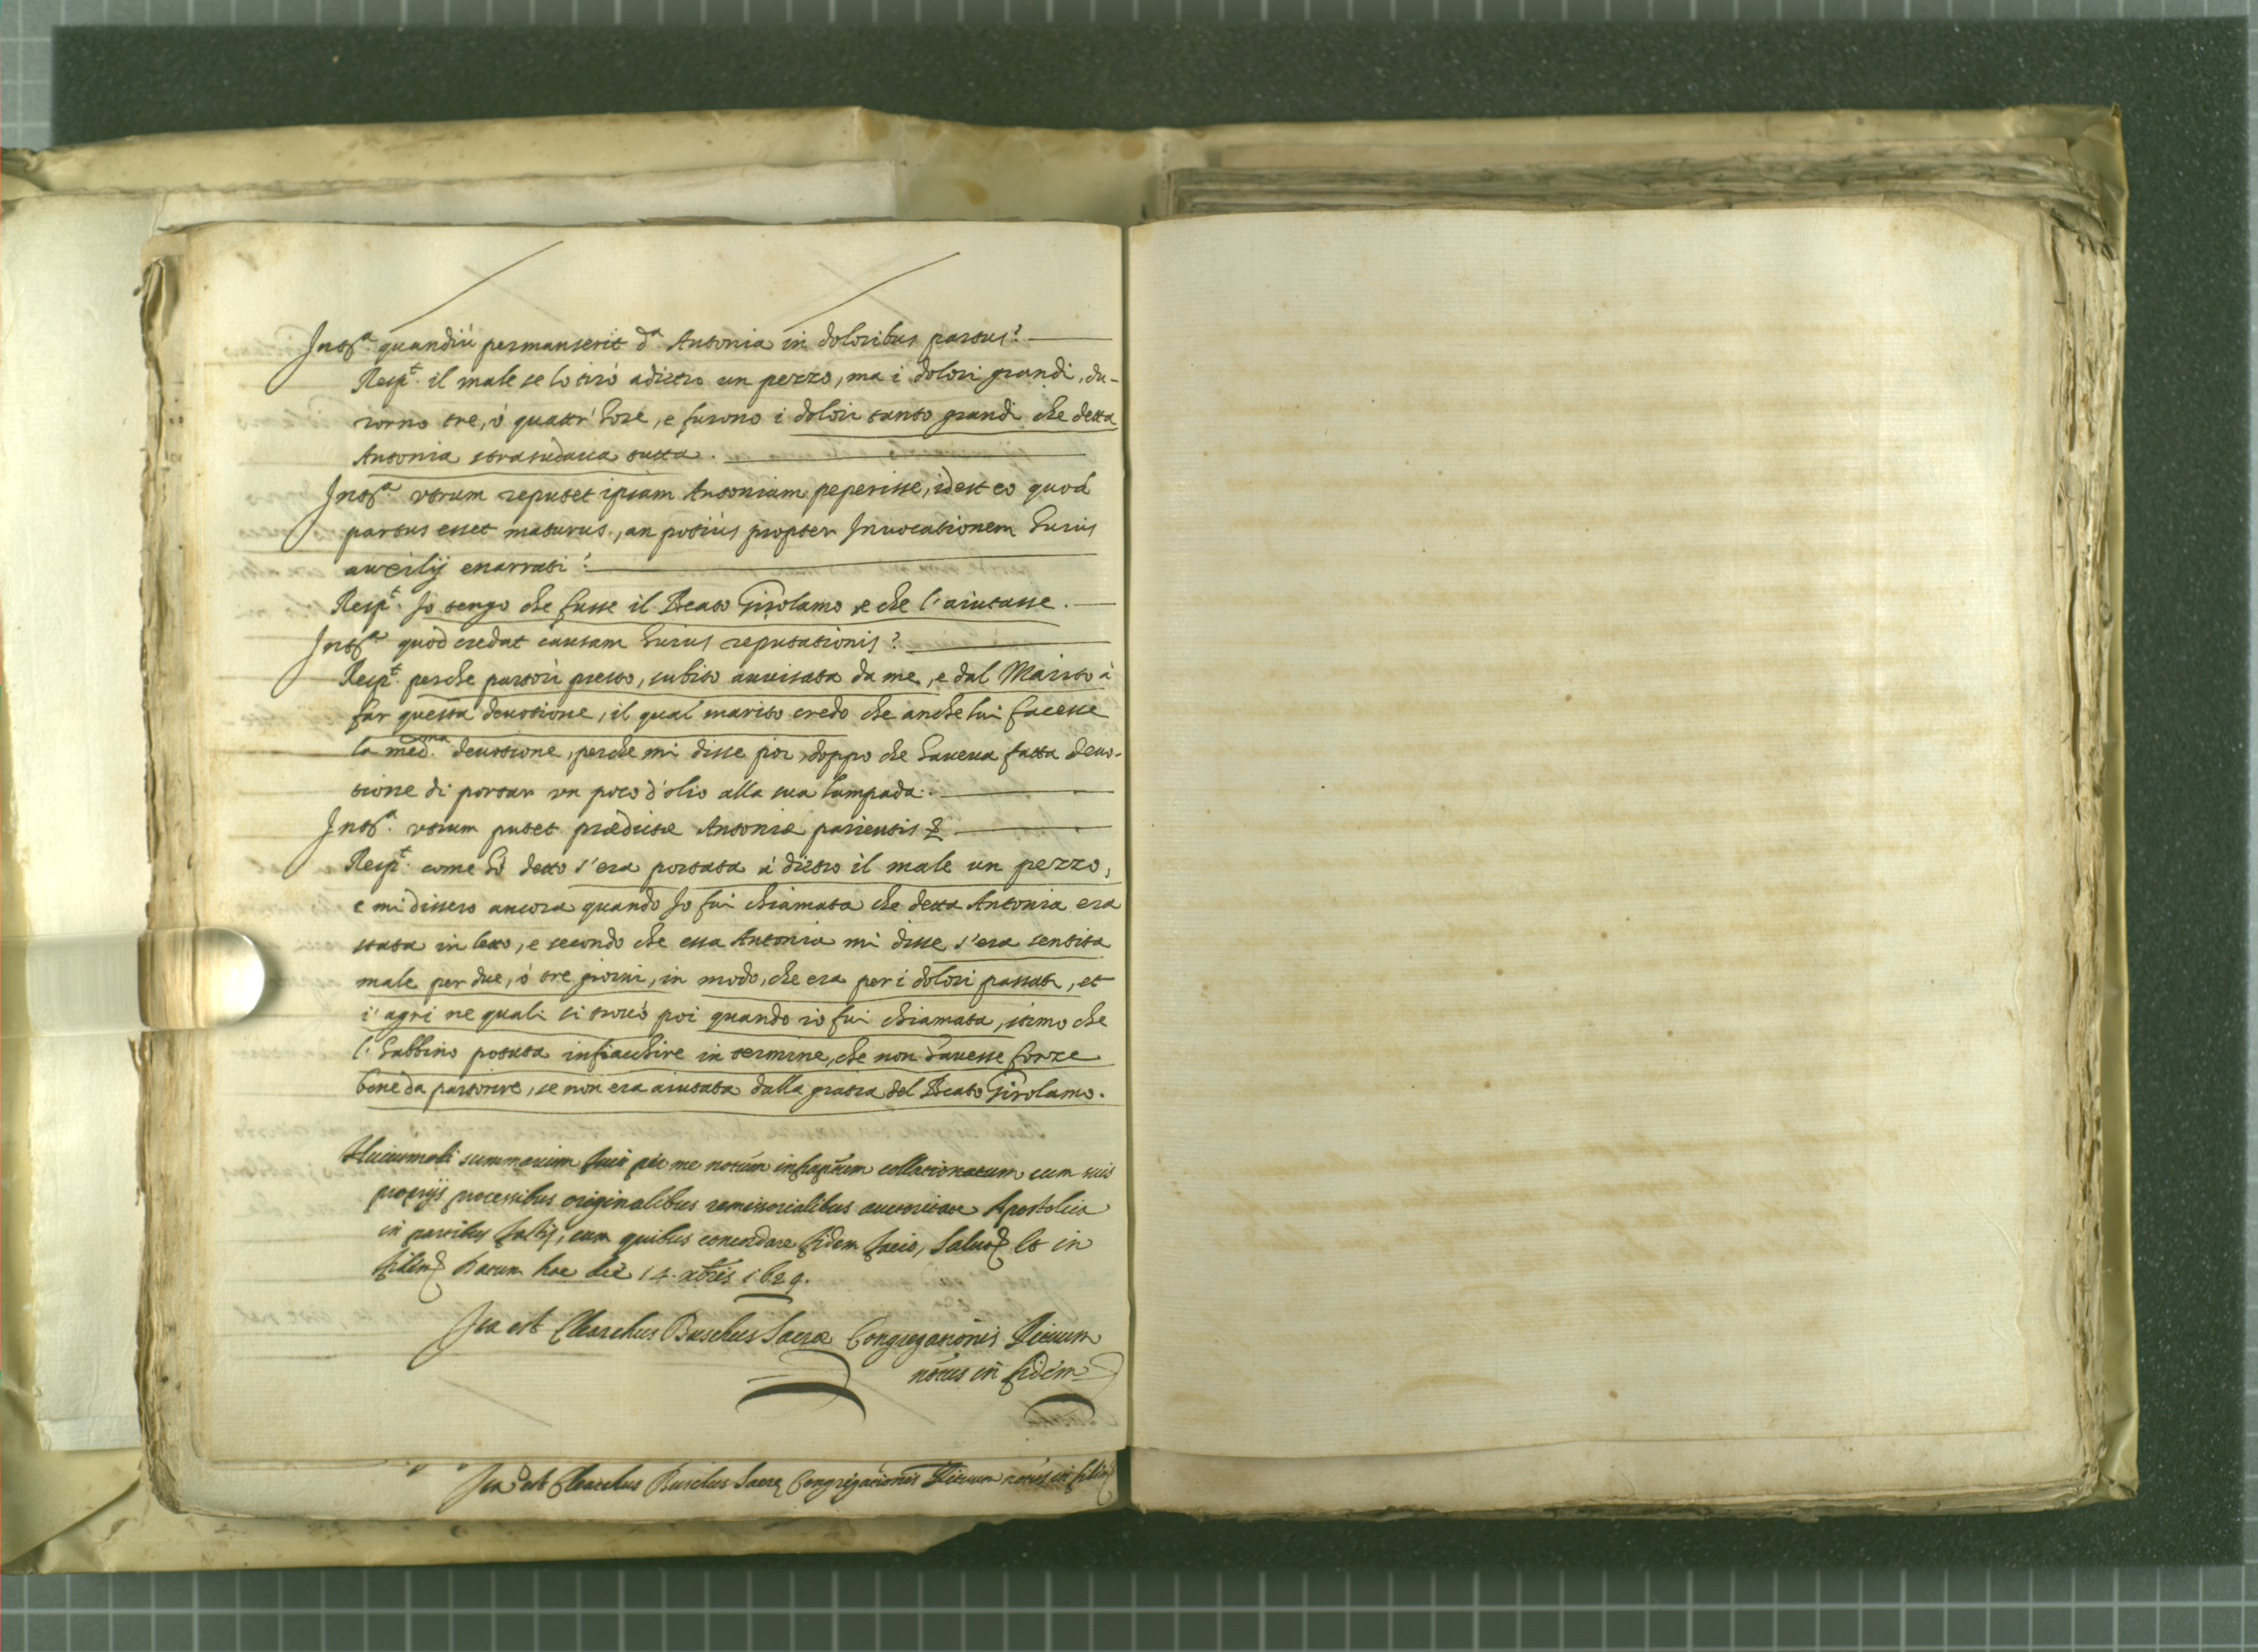 Int.ta quandiù permanserit d.a Antonia in doloribus partus?
Resp.t il male se lo tirò adietro un pezzo, ma i dolori grandi, du-
rorno tre, ò quattr' hore, e furono i dolori tanto grandi che detta
Antonia strasudaua tutta.
Int.ta utrum reputet ipsam Antoniam peperisse, idest eo quod
partus esset maturus, an potiùs propter Inuocationem huius
auxilij enarrati?
Resp.t Io tengo che fusse il Beato Girolamo, e che l'aiutasse.
Int.ta quòd credat causam huius reputationis?
Resp.t perche partorì presto, subito auuisata da me, e dal Marito à
far questa deuotione, il qual marito credo che anche lui facesse
la med.ma deuotione, perche mi disse poi, doppo che haueua fatta deuo-
tione di portar un poco d'olio alla sua lampada.
Int.ta utrum putet prædictæ Antoniæ parientis &
Resp.t come hò detto s'era portata à dietro il male un pezzo,
e mi dissero ancora quando Io fui chiamata che detta Antonia era
stata in letto, e secondo che essa Antonia mi disse s'era sentita
male per due, ò tre giorni, in modo, che era per i dolori passati, et
i agri ne quali si trouò poi quando io fui chiamata, stimo che
l' habbino potuta infiacchire in termine, che non hauesse forze
bone da partorire, se non era aiutata dalla gratia del Beato Girolamo.
Huiusmodi summarium fuit per me notũm infrapũm collationatum cum suis
proprijs processibus originalibus remissorialibus auctoritate Apostolica
in partibus factis, cum quibus concordare fidem facio, Saluo & Et in
fidem & Datum hac die 14. xbris 1629.
Ita est Clearchus Buschus Sacræ Congregationis Rituum
notũs in fidem
Ita est Clearchus Buschus Sacræ Congregationis Rituum notũs in fidem